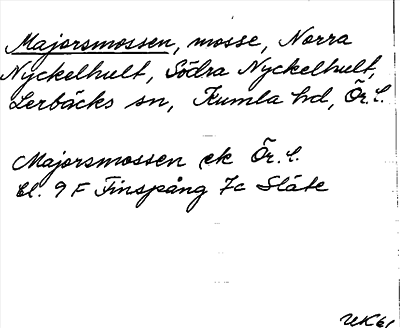 Majorsmossen, mosse, Norra
Nyckelhult, Södra Nyckelhult,
Lerbäcks sn, Kumla hd, Ör. l.
Majorsmossen ek Ör. l.
bl. 9 F Finspång 7c Släte
UK61